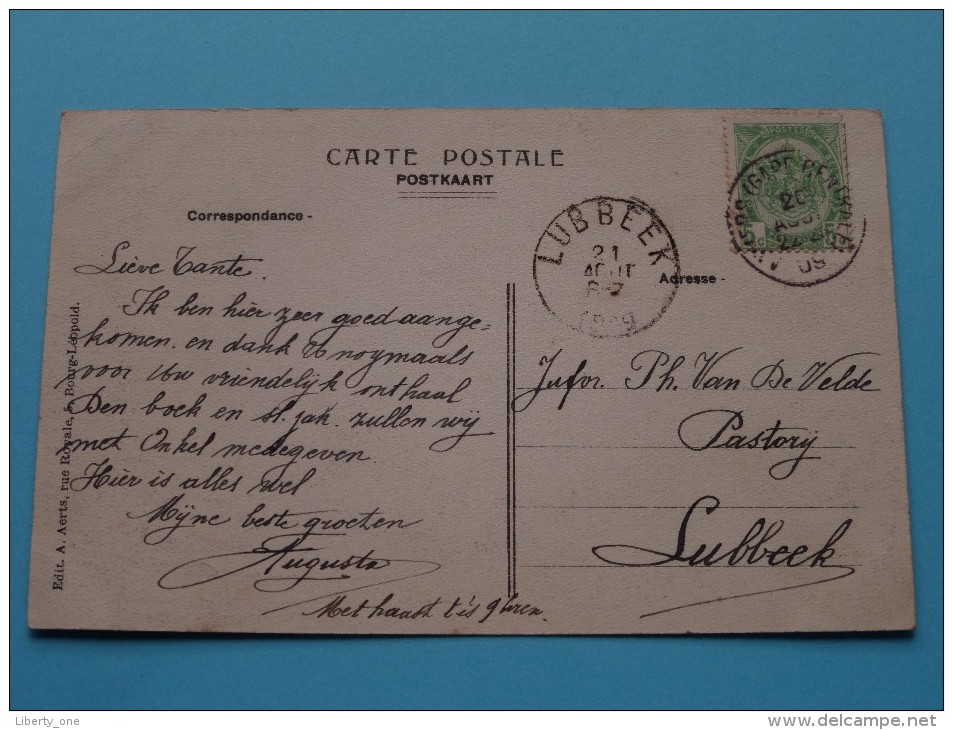 CARTE POSTALE
POSTKAART
Correspondance -
Adresse -
LUBBEEK
21
AOUT
6-7
1909
(GARE CENTRALE)
20
AOUT
09
POSTES
Liève Tante.
Ik ben hier zeer goed aange-
komen. en dank U noymaals
voor Uw vriendelijk onthaal
Den boek en st. jak. zullen wij
met Onkel medegeven.
Hier is alles wel
Mijne beste groeten
Augusta
Met haast t'is 9 Uren
Jufvr. Ph. Van De Velde
Pastorij
Lubbeek
Edit. A. Aerts, rue Royale, 5, Bourg-Léopold.
Liberty_one
www.delcampe.net